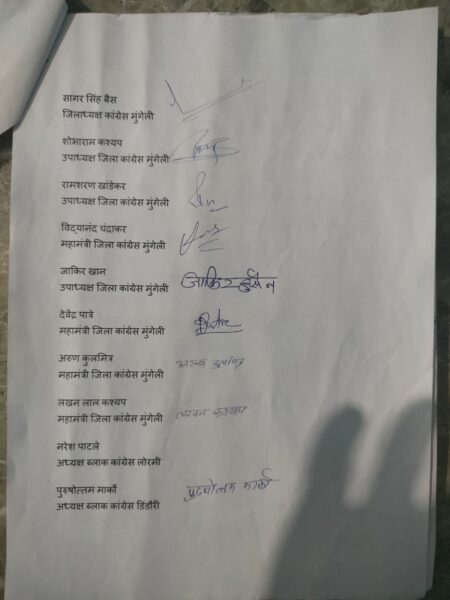 सागर सिंह बैस
जिलाध्यक्ष कांग्रेस मुंगेली
शोभाराम कश्यप
उपाध्यक्ष जिला कांग्रेस मुंगेली
रामशरण खांडेकर
उपाध्यक्ष जिला कांग्रेस मुंगेली
विद्यानंद चंद्राकर
महामंत्री जिला कांग्रेस मुंगेली
जाकिर खान
उपाध्यक्ष जिला कांग्रेस मुंगेली
जाकिर हुसैन
देवेंद्र पात्रे
महामंत्री जिला कांग्रेस मुंगेली
अरुण कुलमित्र
महामंत्री जिला कांग्रेस मुंगेली
लखन लाल कश्यप
महामंत्री जिला कांग्रेस मुंगेली
लखन कश्यप
नरेश पाटले
अध्यक्ष ब्लाक कांग्रेस लोरमी
पुरुषोत्तम मार्को
अध्यक्ष ब्लाक कांग्रेस डिंडौरी